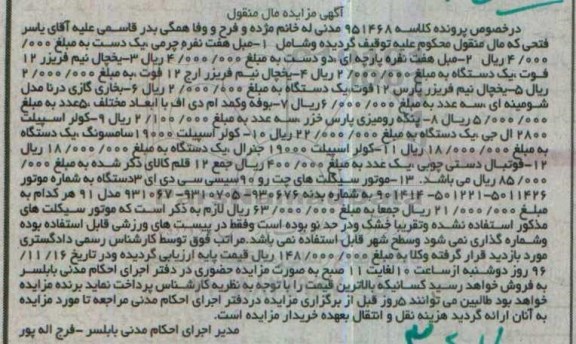 آگهی مزایده مال منقول
درخصوص پرونده کلاسه ۹۵۱۴۶۸ مدنی له خانم مژده و فرح و وفا همگی بدر قاسمی علیه آقای یاسر
فتحی که مال منقول محکوم علیه توقیف گردیده وشامل ۱-مبل هفت نفره چرمی ،یک دست به مبلغ ۰۰۰/
۴/۰۰۰ ریال ۲-مبل هفت نفره پارچه ای ،دو دست به مبلغ ۴/۰۰۰/۰۰۰ ریال ۳-یخچال نیم فریزر ۱۲
فوت ،یک دستگاه به مبلغ ۲/۰۰۰/۰۰۰ ریال ۴-یخچال نیم فریزر ارج ۱۲ فوت ،به مبلغ ۲/۰۰۰/۰۰۰
ریال ۵-یخچال نیم فریزر پارس ۱۲فوت،یک دستگاه به مبلغ ۲/۰۰۰/۰۰۰ ریال ۶-بخاری گازی درنا مدل
شومینه ای ،سه عدد به مبلغ ۶/۰۰۰/۰۰۰ریال ۷-بوفه وکمد ام دی اف با ابعاد مختلف ،۵عدد به مبلغ
۵/۰۰۰/۰۰۰ ریال ۸- پنکه رومیزی پارس خزر ،سه عدد به مبلغ ۲/۱۰۰/۰۰۰ ریال ۹-کولر اسپیلت
۲۸۰۰ ال جی ،یک دستگاه به مبلغ ۲۲/۰۰۰/۰۰۰ ریال ۱۰- کولر اسپیلت ۱۹۰۰۰سامسونگ ،یک دستگاه
به مبلغ ۱۸/۰۰۰/۰۰۰ ریال ۱۱-کولر اسپیلت ۱۹۰۰۰ جنرال ،یک دستگاه به مبلغ ۱۸/۰۰۰/۰۰۰ ریال
۱۲-فوتبال دستی چوبی ،یک عدد به مبلغ ۴۰۰/۰۰۰ ریال جمع ۱۲ قلم کالای ذکر شده به مبلغ ۰۰۰/
۸۵/۰۰۰ ریال می باشد. ۱۳-موتور سیکلت های جت رو ۹۰سیسی سی دی ای ۳دستگاه به شماره موتور
۵۰۱۱۴۲۶-۵۰۱۲۲۱-۹۰۱۴۱۴ به شماره بدنه ۹۳۰۶۷۶-۹۳۱۰۷۰۵-۹۳۱۰۶۷ مدل ۹۱ هر کدام به
مبلغ ۲۱/۰۰۰/۰۰۰ ریال جمعا به مبلغ ۶۳/۰۰۰/۰۰۰ ریال لازم به ذکر است که موتور سیکلت های
مذکور استفاده نشده وتقریبا خشک ودر حد نو بوده است وفقط در پیست های ورزشی قابل استفاده بوده
وشماره گذاری نمی شود وسطح شهر قابل استفاده نمی باشد.مراتب فوق توسط کارشناس رسمی دادگستری
مورد بازدید قرار گرفته وکلا به مبلغ ۱۴۸/۰۰۰/۰۰۰ ریال قیمت پایه ارزیابی گردیده ودر تاریخ ۱۱/۱۶/
۹۶ روز دوشنبه ازساعت ۱۰لغایت ۱۱ صبح به صورت مزایده حضوری در دفتر اجرای احکام مدنی بابلسر
به فروش خواهد رسید کسانیکه بالاترین قیمت را با توجه به نظریه کارشناس پرداخت نماید برنده مزایده
خواهد بود طالبین می توانند ۵روز قبل از برگزاری مزایده دردفتر اجرای احکام مدنی مراجعه تا مورد مزایده
به آنان ارائه گردید هزینه نقل و انتقال بعهده خریدار مزایده است.
مدیر اجرای احکام مدنی بابلسر -فرج اله پور